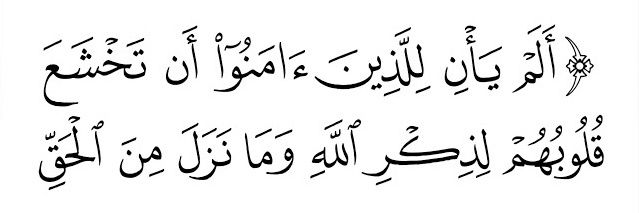 ﴿أَلَمۡ يَأۡنِ لِلَّذِينَ ءَامَنُوٓاْ أَن تَخۡشَعَ
قُلُوبُهُمۡ لِذِكۡرِ ٱللَّهِ وَمَا نَزَلَ مِنَ ٱلۡحَقِّ